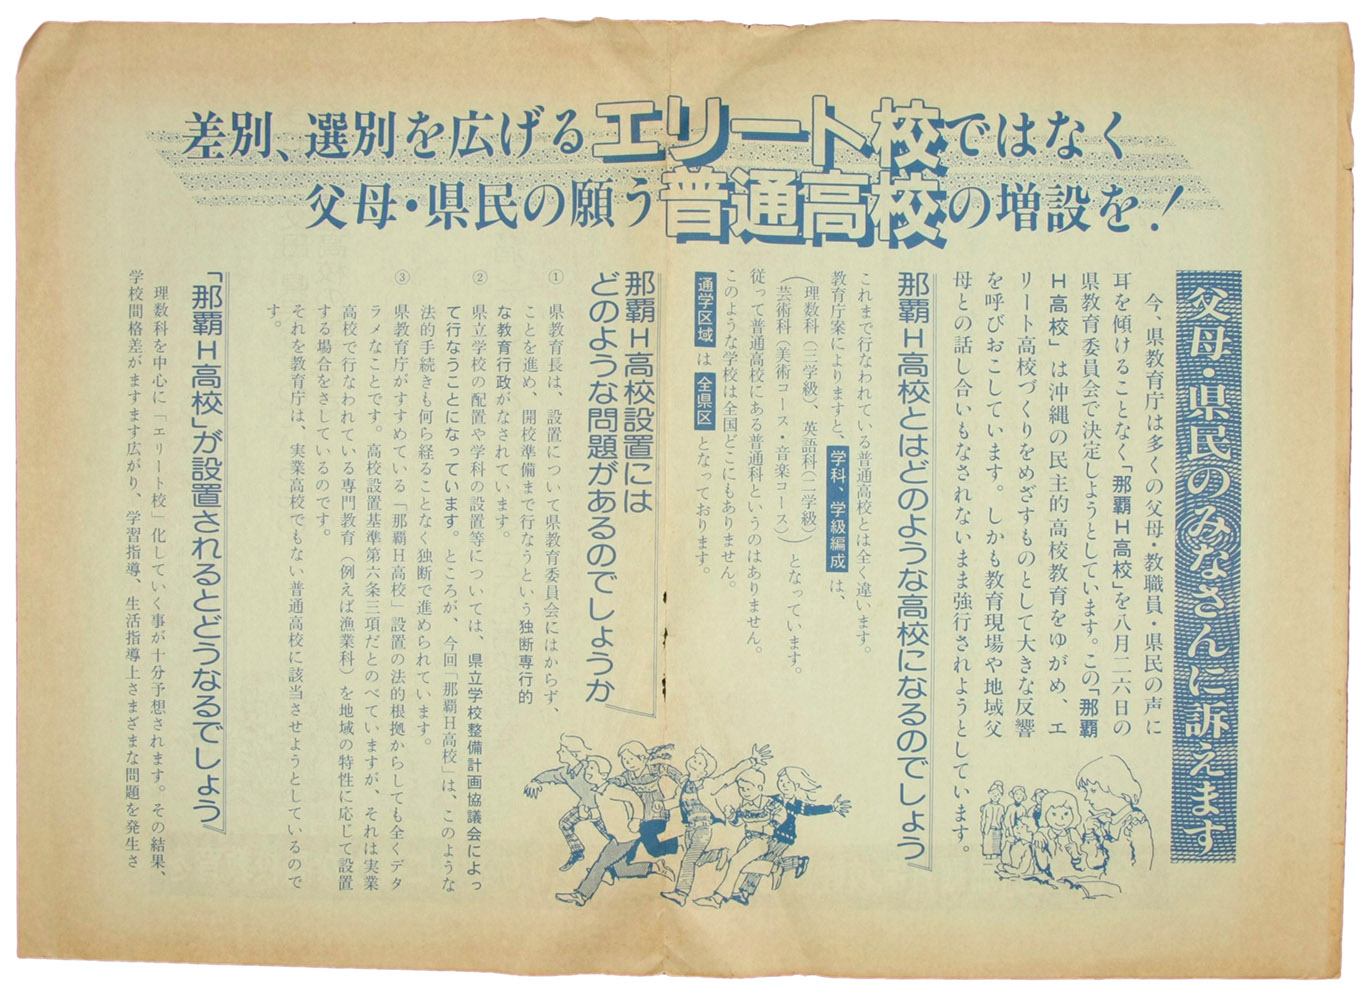 差別、選別を広げるエリート校ではなく
父母・県民の願う普通高校の増設を!
父母・県民のみなさんに訴えます
今、県教育庁は多くの父母・教職員・県民の声に
耳を傾けることなく「那覇H高校」を八月二六日の
県教育委員会で決定しようとしています。この「那覇
H高校」は沖縄の民主的高校教育をゆがめ、エ
リート高校づくりをめざすものとして大きな反響
を呼びおこしています。しかも教育現場や地域父
母との話し合いもなされないまま強行されようとしています。
那覇H高校とはどのような高校になるのでしょう
これまで行なわれている普通高校とは全く違います。
教育庁案によりますと、学科、学級編成は、
(理数科(三学級)、英語科(二学級)
(芸術科(美術コース・音楽コース))となっています。
従って普通高校にある普通科というのはありません。
このような学校は全国どこにもありません。
通学区域は全県区となっております。
那覇H高校設置には
どのような問題があるのでしょうか
① 県教育長は、設置について県教育委員会にはからず、
ことを進め、開校準備まで行なうという独断専行的
な教育行政がなされています。
② 県立学校の配置や学科の設置等については、県立学校整備計画協議会によっ
て行なうことになっています。ところが、今回「那覇H高校」は、このような
法的手続きも何ら経ることなく独断で進められています。
③ 県教育庁がすすめている「那覇H高校」設置の法的根拠からしても全くデタ
ラメなことです。高校設置基準第六条三項だとのべていますが、それは実業
高校で行なわれている専門教育(例えば漁業科)を地域の特性に応じて設置
する場合をさしているのです。
それを教育庁は、実業高校でもない普通高校に該当させようとしているので
す。
「那覇H高校」が設置されるとどうなるでしょう
理数科を中心に「エリート校」化していく事が十分予想されます。その結果、
学校間格差がますます広がり、学習指導、生活指導上さまざまな問題を発生さ